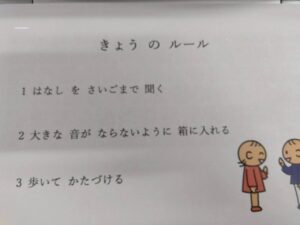 きょう の ルール
1 はなし を さいごまで 聞く
2 大きな 音が ならないように 箱に入れる
3 歩いて かたづける